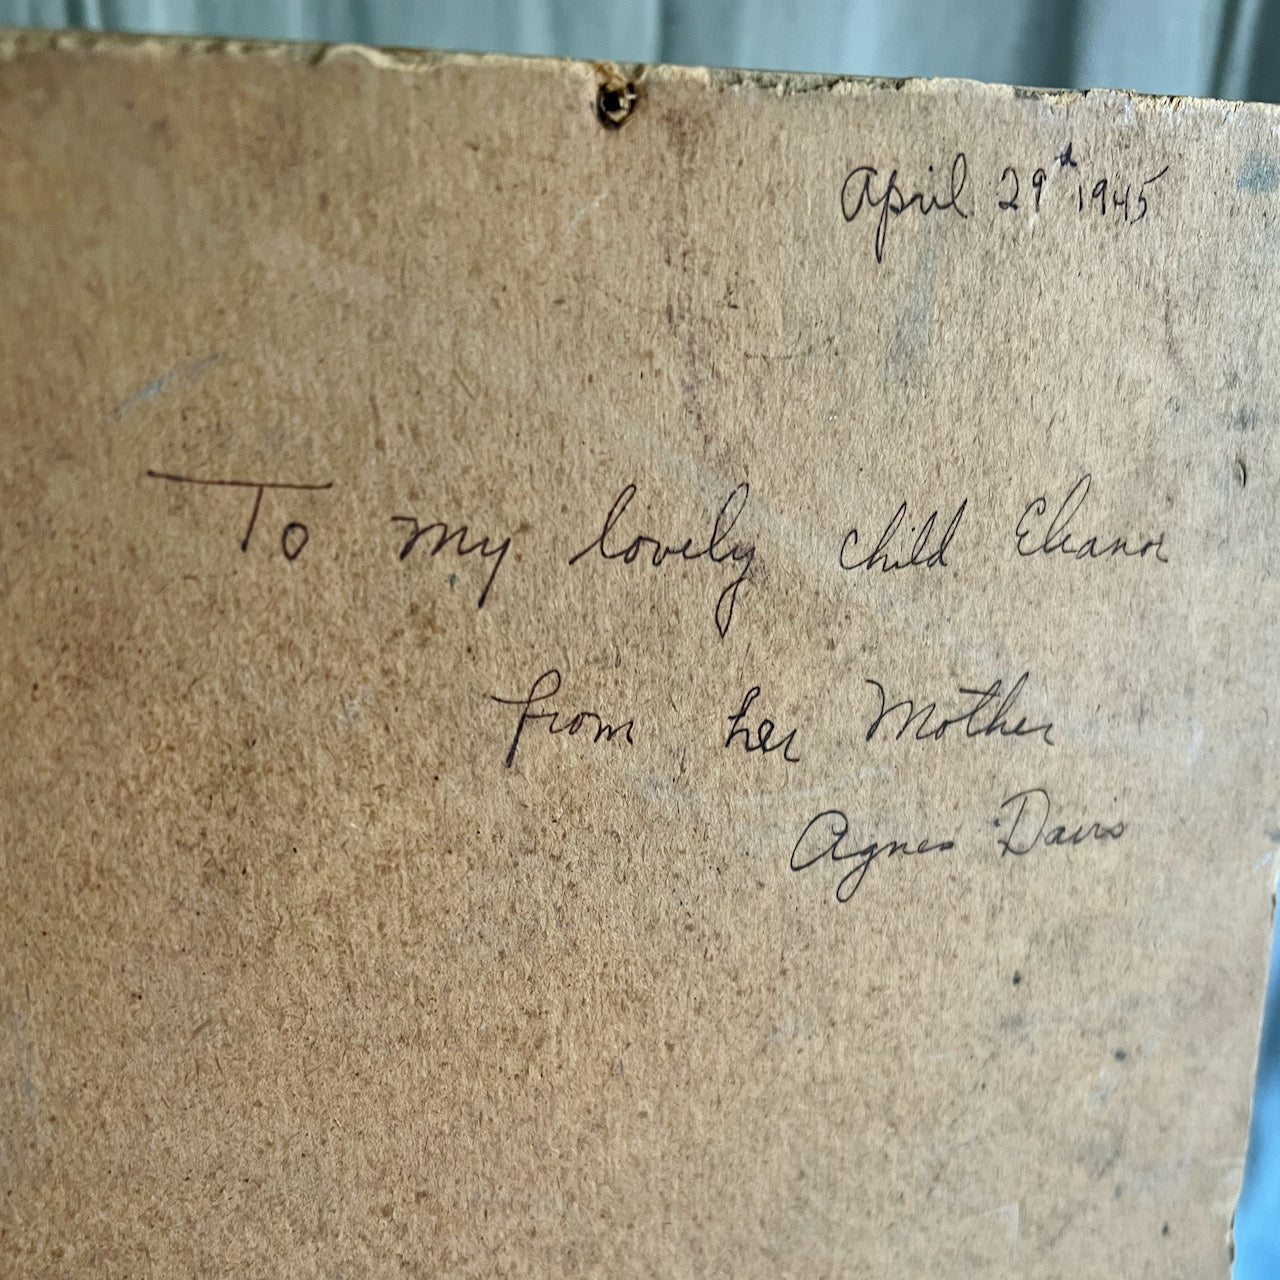 April 29th 1945
To my lovely child Eleanor
from her Mother
Agnes Davis